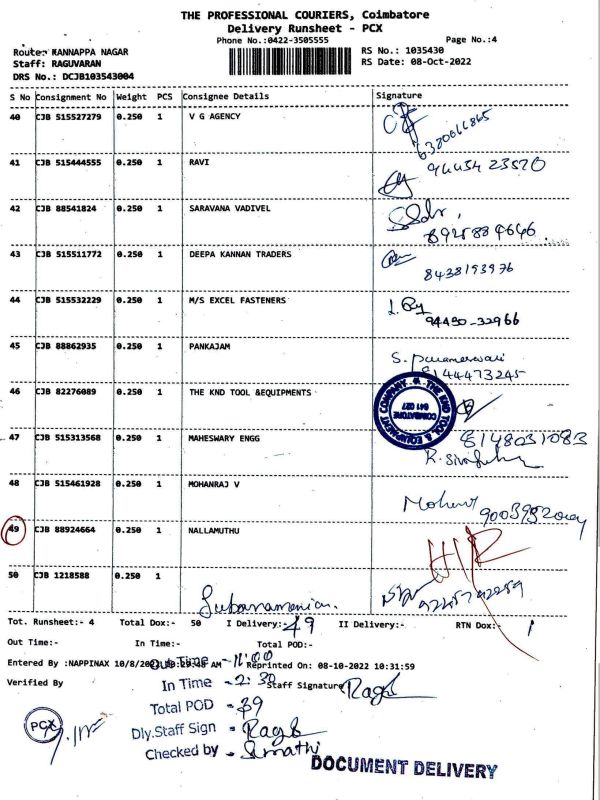 THE PROFESSIONAL COURIERS, Coimbatore
Delivery Runsheet - PCX
Phone No.:0422-3505555 Page No.:4
Route: KANNAPPA NAGAR RS No.: 1035430
Staff: RAGUVARAN RS Date: 08-Oct-2022
DRS No.: DCJB103543004
S No Consignment No Weight PCS Consignee Details Signature
40 CJB 515527279 0.250 1 V G AGENCY
6320066865
41 CJB 515444555 0.250 1 RAVI
94434 23520
42 CJB 88541824 0.250 1 SARAVANA VADIVEL
43 CJB 515511772 0.250 1 DEEPA KANNAN TRADERS
8438193976
44 CJB 515532229 0.250 1 M/S EXCEL FASTENERS
45 CJB 88862935 0.250 1 PANKAJAM
8144473245
46 CJB 82276089 0.250 1 THE KND TOOL &EQUIPMENTS
THE KND TOOL & EQUIPMENT COMPANY
COIMBATORE
641 027
47 CJB 515313568 0.250 1 MAHESWARY ENGG
8148031083
48 CJB 515461928 0.250 1 MOHANRAJ V
49 CJB 88924664 0.250 1 NALLAMUTHU
50 CJB 1218588 0.250 1
Tot. Runsheet:- 4 Total Dox:- 50 I Delivery:- 49 II Delivery:- RTN Dox:- 1
Out Time:- In Time:- Total POD:-
Entered By :NAPPINAX Reprinted On: 08-10-2022 10:31:59
Out Time - 11:00
Verified By Staff Signature Ragu
In Time - 2:30
Total POD - 39
PCX
Dly.Staff Sign - Ragu
Checked by -
DOCUMENT DELIVERY